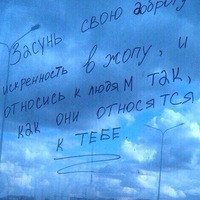 Засунь свою доброту,
искренность в жопу, и
относись к людям так,
как они относятся
к тебе.